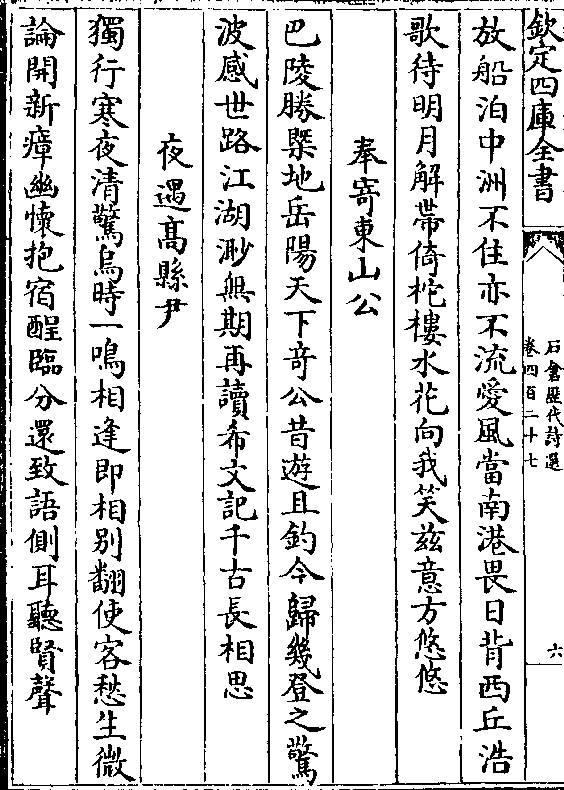 欽定四庫全書
石倉歷代詩選
卷四百二十七
六
放船泊中洲不住亦不流愛風當南港畏日背西丘浩
歌待明月解帶倚柁樓水花向我笑兹意方悠悠
奉寄東山公
巴陵勝槩地岳陽天下竒公昔遊且釣今歸幾登之驚
波感世路江湖渺無期再讀希文記千古長相思
夜遇髙縣尹
獨行寒夜清驚烏時一鳴相逢即相别翻使客愁生微
論開新瘴幽懷抱宿酲臨分還致語側耳聽賢聲